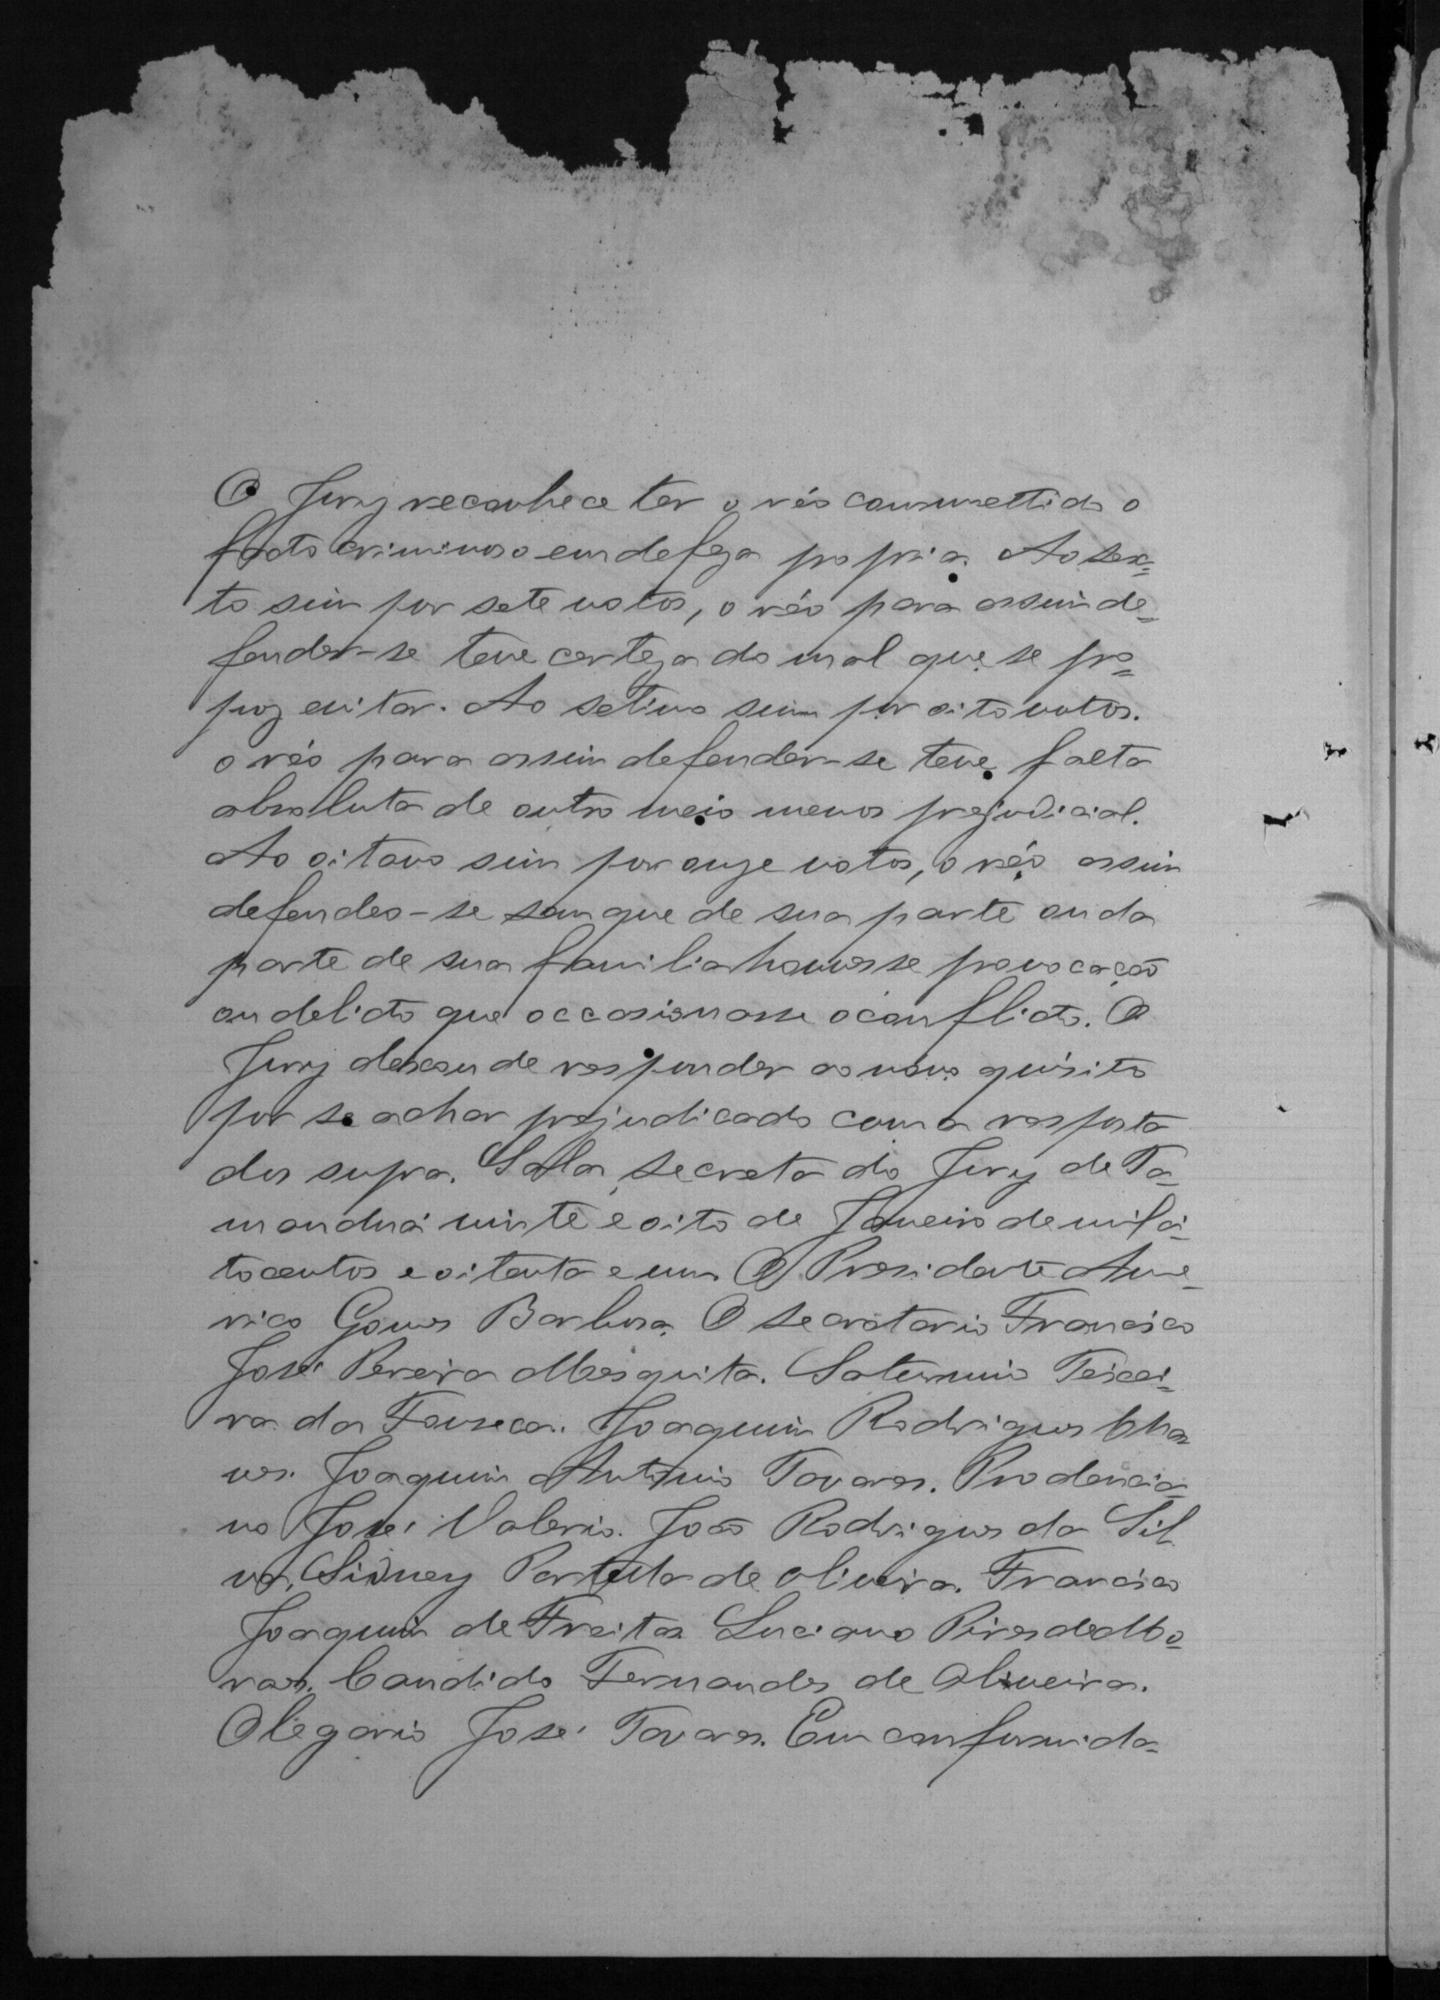 O Jury reconhece ter o réo commettido o
facto criminoso em defeza propria. Ao sex=
to sim por sete votos, o réo para assim de=
fender-se teve certeza do mal que se pro=
poz evitar. Ao setimo sim por oito votos.
o réo para assim defender-se teve falta
absoluta de outro meio menos prejudicial.
Ao oitavo sim por onze votos, o réo assim
defendeo-se sem que de sua parte ou da
parte de sua familia houvesse provocação
ou delicto que occasionasse o conflicto. O
Jury deixou de responder ao nono quisito
por se achar prejudicado com a resposta
dos supra. Salla secreta do Jury de Ta=
manduá vinte e oito de Janeiro de mil oi=
tocentos e oitenta e um O Presidente Ame=
rico Gomes Barbosa. O secretario Francisco
José Pereira Mesquita. Saturnino Teixei=
ra da Fonseca. Joaquim Rodrigues Cha=
ves. Joaquim Antonio Tavares. Prodencia=
no José Valerio. João Rodrigues da Sil
va, Sidney de Oliveira. Francisco
Joaquim de Freitas Luciano Pires de Mo=
raes. Candido Fernandes de Oliveira.
Olegario José Tavares. Em conformida=